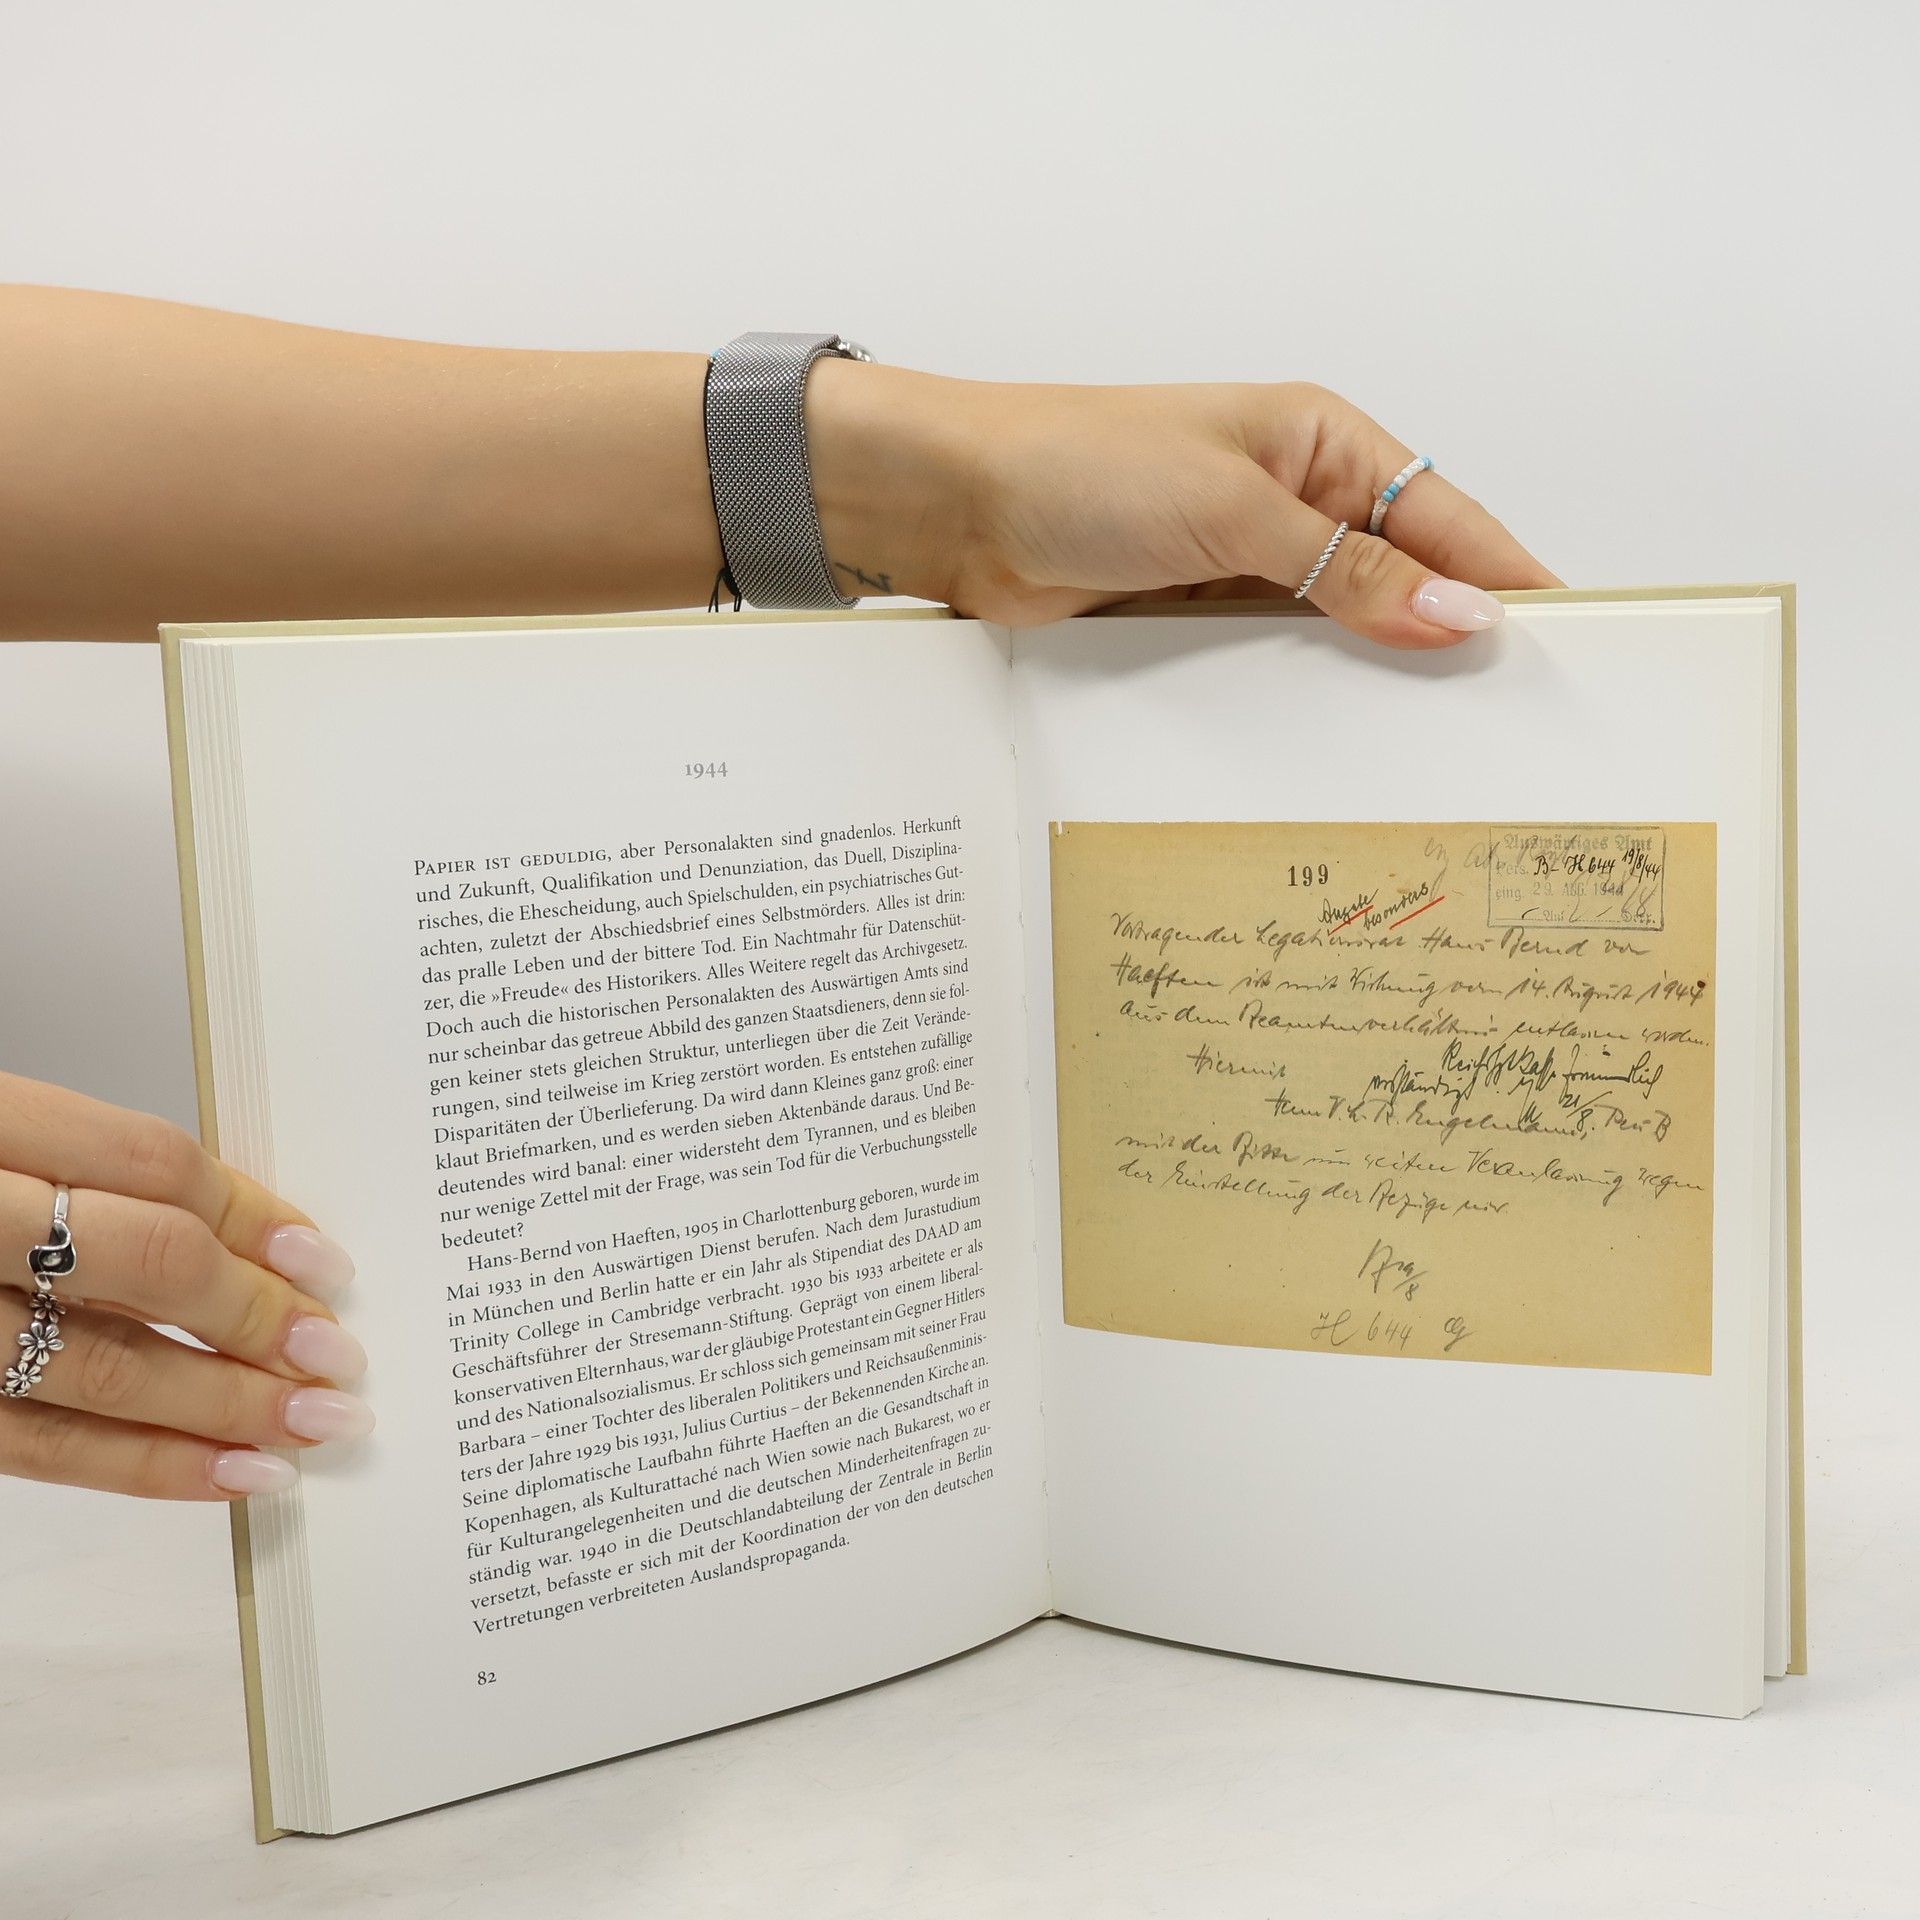 1944
PAPIER IST GEDULDIG, aber Personalakten sind gnadenlos. Herkunft
und Zukunft, Qualifikation und Denunziation, das Duell, Disziplina-
risches, die Ehescheidung, auch Spielschulden, ein psychiatrisches Gut-
achten, zuletzt der Abschiedsbrief eines Selbstmörders. Alles ist drin:
das pralle Leben und der bittere Tod. Ein Nachtmahr für Datenschüt-
zer, die »Freude« des Historikers. Alles Weitere regelt das Archivgesetz.
Doch auch die historischen Personalakten des Auswärtigen Amts sind
nur scheinbar das getreue Abbild des ganzen Staatsdieners, denn sie fol-
gen keiner stets gleichen Struktur, unterliegen über die Zeit Verände-
rungen, sind teilweise im Krieg zerstört worden. Es entstehen zufällige
Disparitäten der Überlieferung. Da wird dann Kleines ganz groß: einer
klaut Briefmarken, und es werden sieben Aktenbände daraus. Und Be-
deutendes wird banal: einer widersteht dem Tyrannen, und es bleiben
nur wenige Zettel mit der Frage, was sein Tod für die Verbuchungsstelle
bedeutet?
Hans-Bernd von Haeften, 1905 in Charlottenburg geboren, wurde im
Mai 1933 in den Auswärtigen Dienst berufen. Nach dem Jurastudium
in München und Berlin hatte er ein Jahr als Stipendiat des DAAD am
Trinity College in Cambridge verbracht. 1930 bis 1933 arbeitete er als
Geschäftsführer der Stresemann-Stiftung. Geprägt von einem liberal-
konservativen Elternhaus, war der gläubige Protestant ein Gegner Hitlers
und des Nationalsozialismus. Er schloss sich gemeinsam mit seiner Frau
Barbara – einer Tochter des liberalen Politikers und Reichsaußenminis-
ters der Jahre 1929 bis 1931, Julius Curtius – der Bekennenden Kirche an.
Seine diplomatische Laufbahn führte Haeften an die Gesandtschaft in
Kopenhagen, als Kulturattaché nach Wien sowie nach Bukarest, wo er
für Kulturangelegenheiten und die deutschen Minderheitenfragen zu-
ständig war. 1940 in die Deutschlandabteilung der Zentrale in Berlin
versetzt, befasste er sich mit der Koordination der von den deutschen
Vertretungen verbreiteten Auslandspropaganda.
82
Auswärtiges Amt
Pers. B- H 644 19/8/44
eing. 29. AUG. 1944
199
besonders
Vortragender Legationsrat Hans Bernd von
Haeften ist mit Wirkung vom 14. August 1944
aus dem Beamtenverhältnis entlassen worden.
Hiermit
Herrn V.L.R. Engelmann, Pers B
mit der Bitte um weitere Veranlassung wegen
der Einstellung der Bezüge usw.
H 644